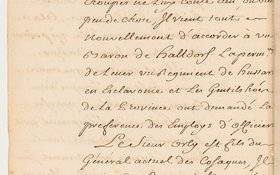 peu de chose, Il vient tout
nouvellement d'accorder a un
Baron de Halldorf La perm
de Lever un Regiment de Husar
en Esclavonie et Les Gentilshōes
de La Province ont demandé La
preference des Employs d'Officier
Le Sieur Orly est fils du
General actuel des Cosaques, Il